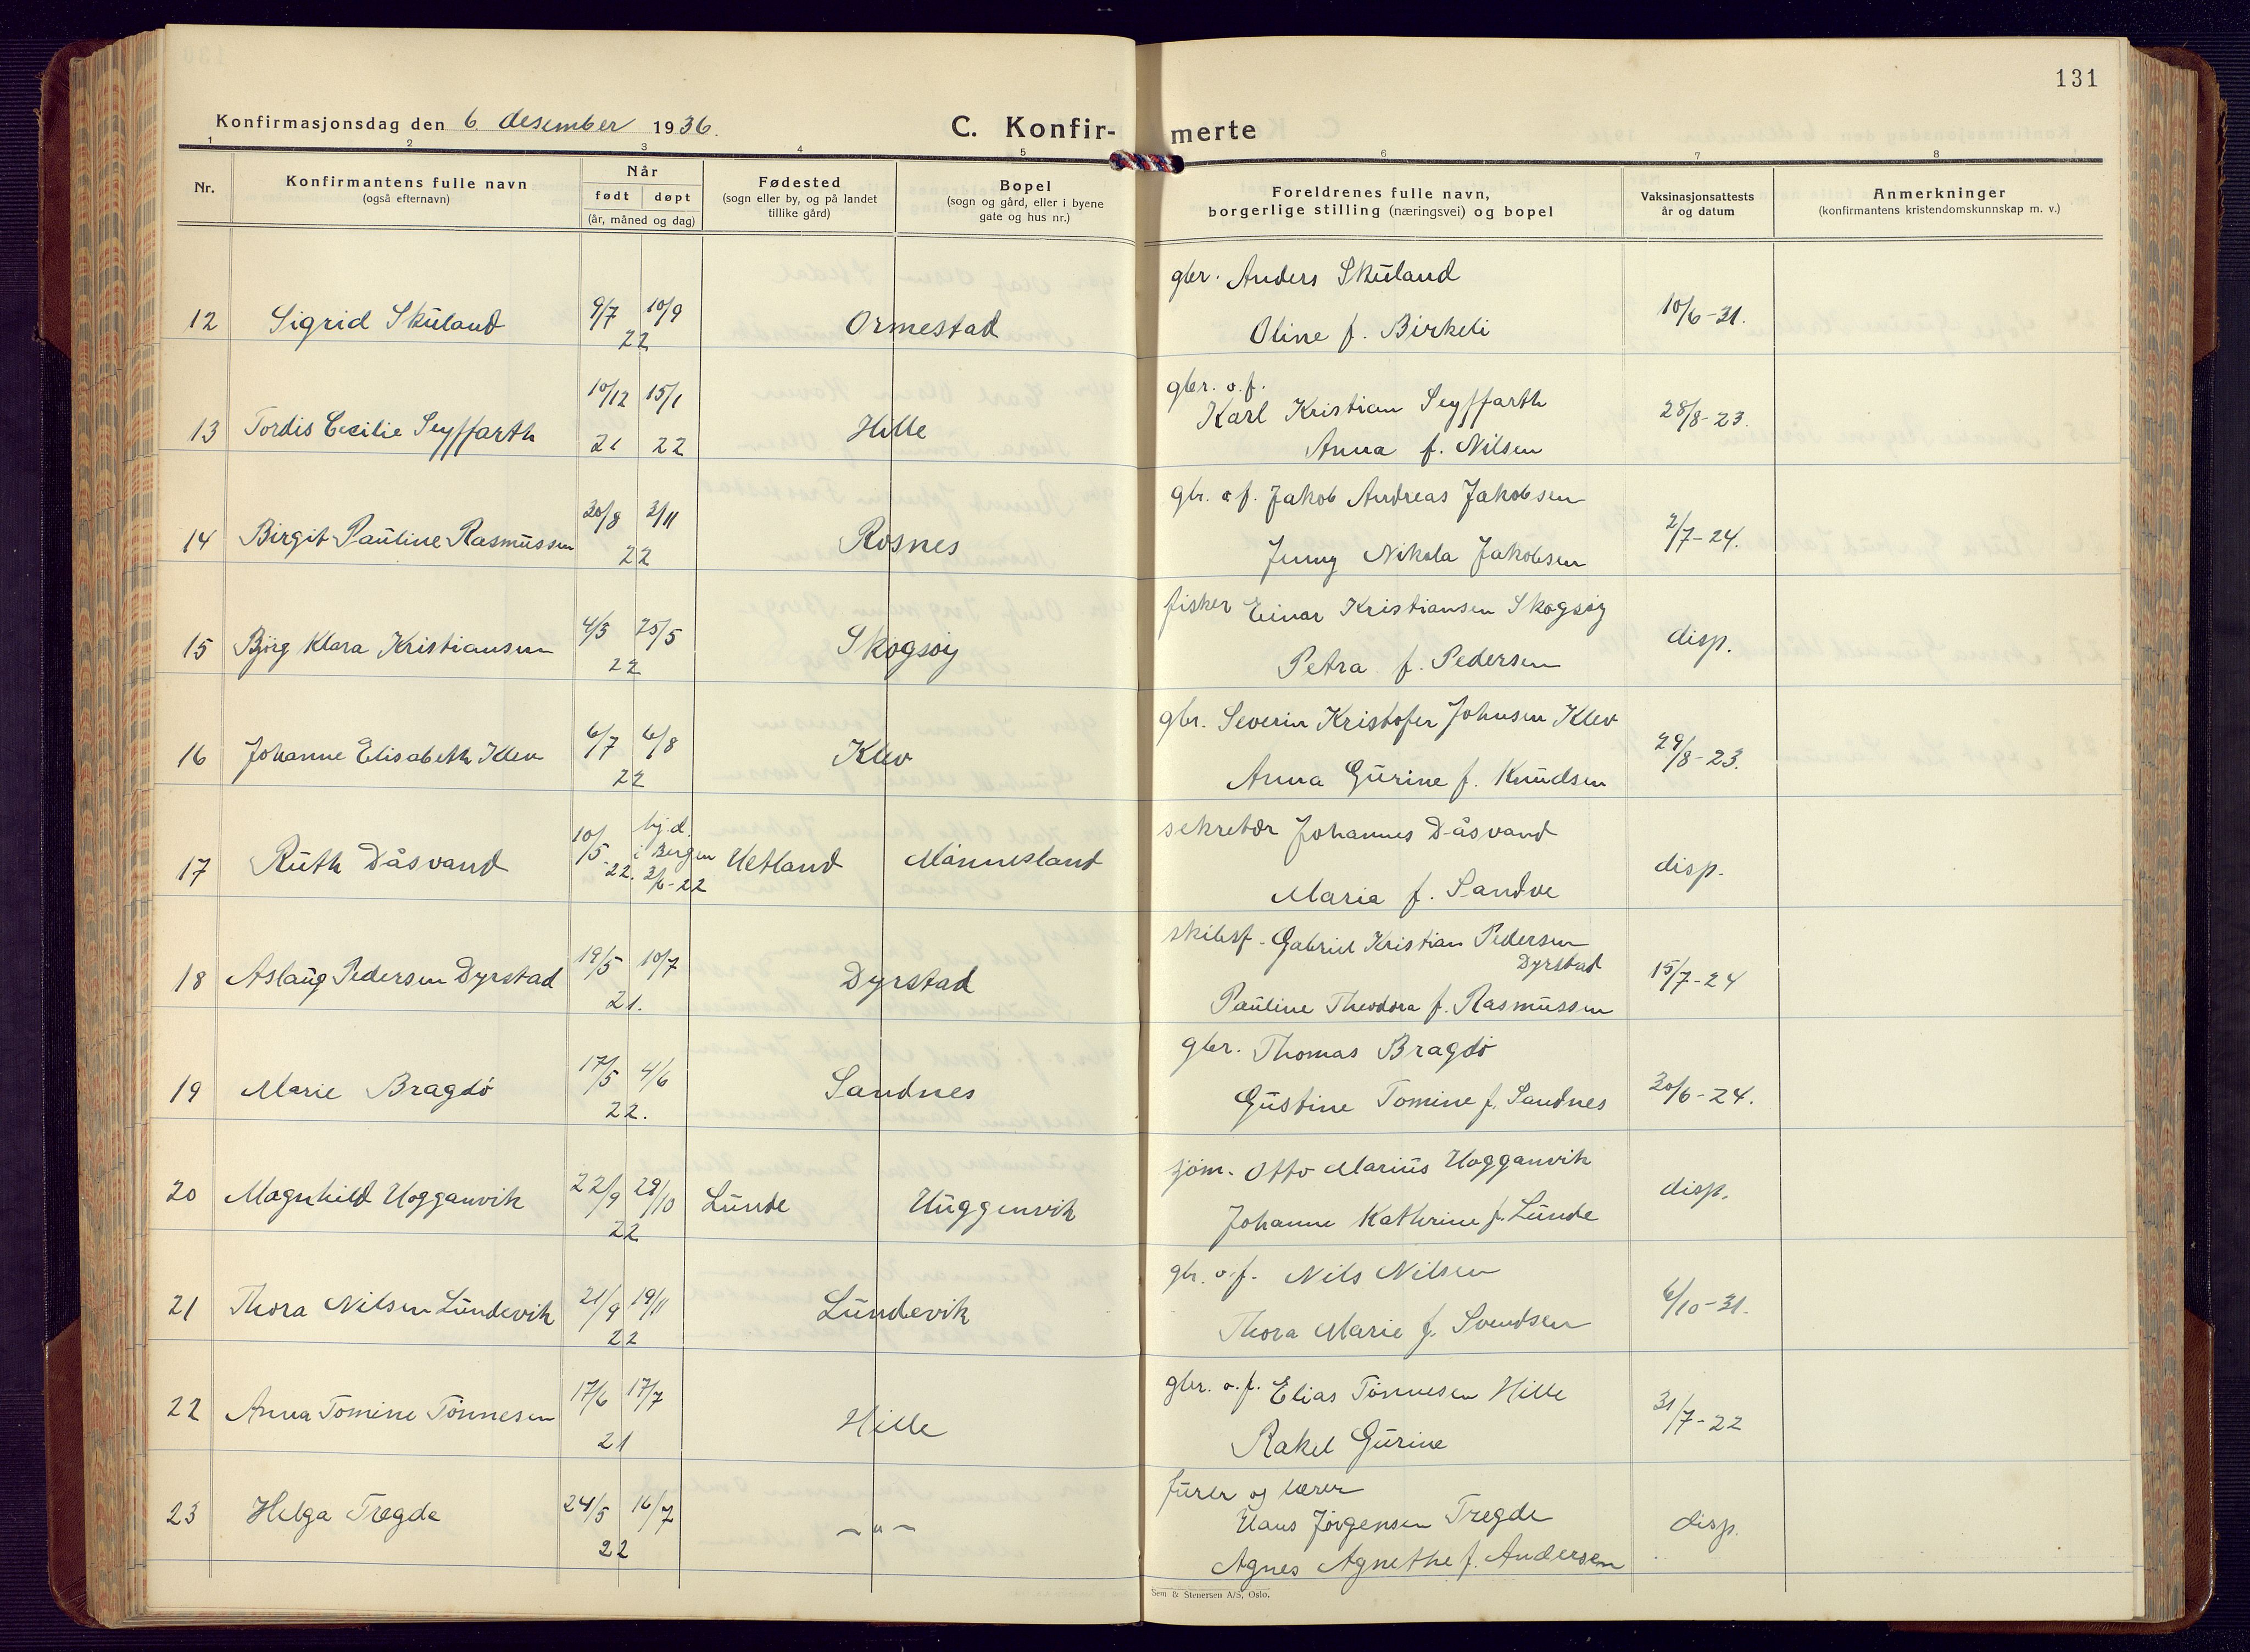 131
Konfirmasjonsdag den 6. desember 1936.
C. Konfir-merte
1 2 3 4 5 6 7 8
Nr.
Konfirmantens fulle navn
(også efternavn)
Når
født døpt
(år, måned og dag)
Fødested
(sogn eller by, og på landet
tillike gård)
Bopel
(sogn og gård, eller i byene
gate og hus nr.)
Foreldrenes fulle navn,
borgerlige stilling (næringsvei) og bopel
Vaksinasjonsattests
år og datum
Anmerkninger
(konfirmantens kristendomskunnskap m. v.)
gbr. Anders Skuland
12 Sigrid Skuland 9/7 10/9 Ormestad 10/6-31.
22 Oline f. Birkeli
gbr. o. f.
10/12 15/1 Karl Kristian Seyffarth 28/8-23.
13 Tordis Cecilie Seyffarth 21 22 Hille
Anna f. Nilsen
gbr. o f. Jakob Andreas Jakobsen
14 Birgit Pauline Rasmussen 20/8 2/11 Rosnes 2/7-24.
22 Jenny Nikola Jakobsen
fisker Einar Kristiansen Skogsøy
15 Bjørg Klara Kristiansen 4/3 25/5 Skogsøy disp.
22 Petra f. Pedersen
gbr. Severin Kristofer Johnsen Klev
16 Johanne Elisabeth Klev 6/7 6/8 Klev 29/8-23.
22 Anna Gurine f. Knudsen
sekretær Johannes Dåsvand
17 Ruth Dåsvand 10/5-22. hj.d. i Bergen 3/6-22 Uetland Månnesland disp.
Maria f. Sandve
skibsf. Gabriel Kristian Pedersen
Dyrstad
18 Aslaug Pedersen Dyrstad 19/5 10/7 Dyrstad 15/7-24
21. Pauline Theodora f. Rasmussen
gbr. Thomas Bragdø
19 Marie Bragdø 17/5 4/6 Sandnes 20/6-24.
22. Gustine Tomine f. Sandnes
sjøm. Otto Marius Uogganvik
20 Magnhild Uogganvik 22/9 29/10 Lunde Uuggenvik disp.
22 Johanne Kathrine f. Lunde
gbr. o. f. Nils Nilsen
21 Thora Nilsen Lundevik 21/9 19/11 Lundevik 6/10-31.
22 Thora Marie f. Svendsen
gbr. o. f. Elias Tønnesen Hille
22 Anna Tomine Tønnesen 17/6 17/7 Hille 31/7-22
21 Rakel Gurine
furer og lærer
23 Helga Tregde 24/5 16/7 — " — Hans Jørgensen Tregde disp.
22 Agnes Agnethe f. Andersen
Sem & Stenersen A/S, Oslo.